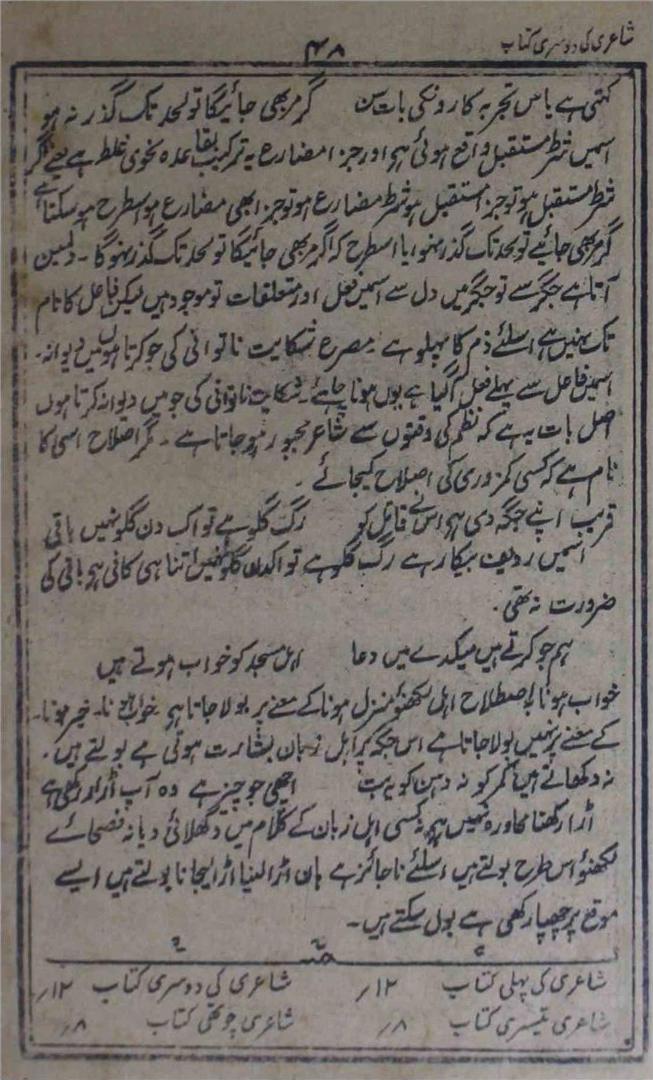 شاعری کی دوسری کتاب
۴۸
کہتی ہے یاس تجربہ کارونکی بات سن گر مر بھی جائیگا تو لحد تک گذر نہ ہو
اسمیں شرط مستقبل واقع ہوئی ہی اور جزا مضارع یہ ترکیب بقاعدہ نحوی غلط ہے یعنے اگر
شرط مستقبل ہو تو جزا مستقبل ہو شرط مضارع ہو تو جزا بھی مضارع ہو اسطرح ہو سکتا ہے
گر مر بھی جائیے تو لحد تک گذر نہو یا اسطرح کہ اگر مر بھی جائیگا تو لحد تک گذر نہو گا ۔
آتا ہے جگر سے تو جگر میں دل سے اسمیں فعل اور متعلقات تو موجود ہیں لیکن فاعل کا نام
تک نہیں ہے اسلئے ذم کا پہلو ہے ۔ مصرع شکایت ناتوانی کی جو کرتا ہوں میں دیوانہ ۔
اسمیں فاعل سے پہلے فعل آ گیا ہے یوں ہونا چاہئے ۔ شکایت ناتوانی کی جو میں دیوانہ کرتا ہوں
اصل بات یہ ہے کہ نظم کی دقتوں سے شاعر مجبور ہو جاتا ہے ۔ مگر اصلاح اسی کا
نام ہے کہ کسی کمزوری کی اصلاح کیجائے ۔
قریب اپنے جگہ دی ہی اس نے قاتل کو رگ گلو ہے تو اک دن گلو نہیں باقی
اسمیں ردیف بیکار ہے رگ گلو ہے تو اکدن گلو نہیں اتنا ہی کافی ہی باقی کی
ضرورت نہ تھی ۔
ہم جو کرتے ہیں میکدے میں دعا اہل مسجد کو خواب ہوتے ہیں
خواب ہونا باصطلاح اہل لکھنؤ منزل ہونا کے معنے پر بولا جاتا ہی خواب ہونا ۔ خبر ہونا ۔
کے معنے پر نہیں بولا جاتا ہے اس جگہ پر اہل زبان بشارت ہوئی ہے بولتے ہیں ۔
نہ دکھاتے ہیں کمر کو نہ دہن کو یہ بت اچھی جو چیز ہے وہ آپ اڑا رکھی ہے
اڑا رکھنا محاورہ نہیں ہی نہ کسی اہل زبان کے کلام میں دکھلائی دیا نہ فصحائے
لکھنؤ اس طرح بولتے ہیں اسلئے ناجائز ہے ہاں اڑا لینا اڑا لیجانا بولتے ہیں ایسے
موقع پر چھپا رکھی ہے بول سکتے ہیں ۔
شاعری کی پہلی کتاب ۱۲؍ شاعری کی دوسری کتاب ۱۲؍
شاعری تیسری کتاب ۸؍ شاعری چوتھی کتاب ۸؍